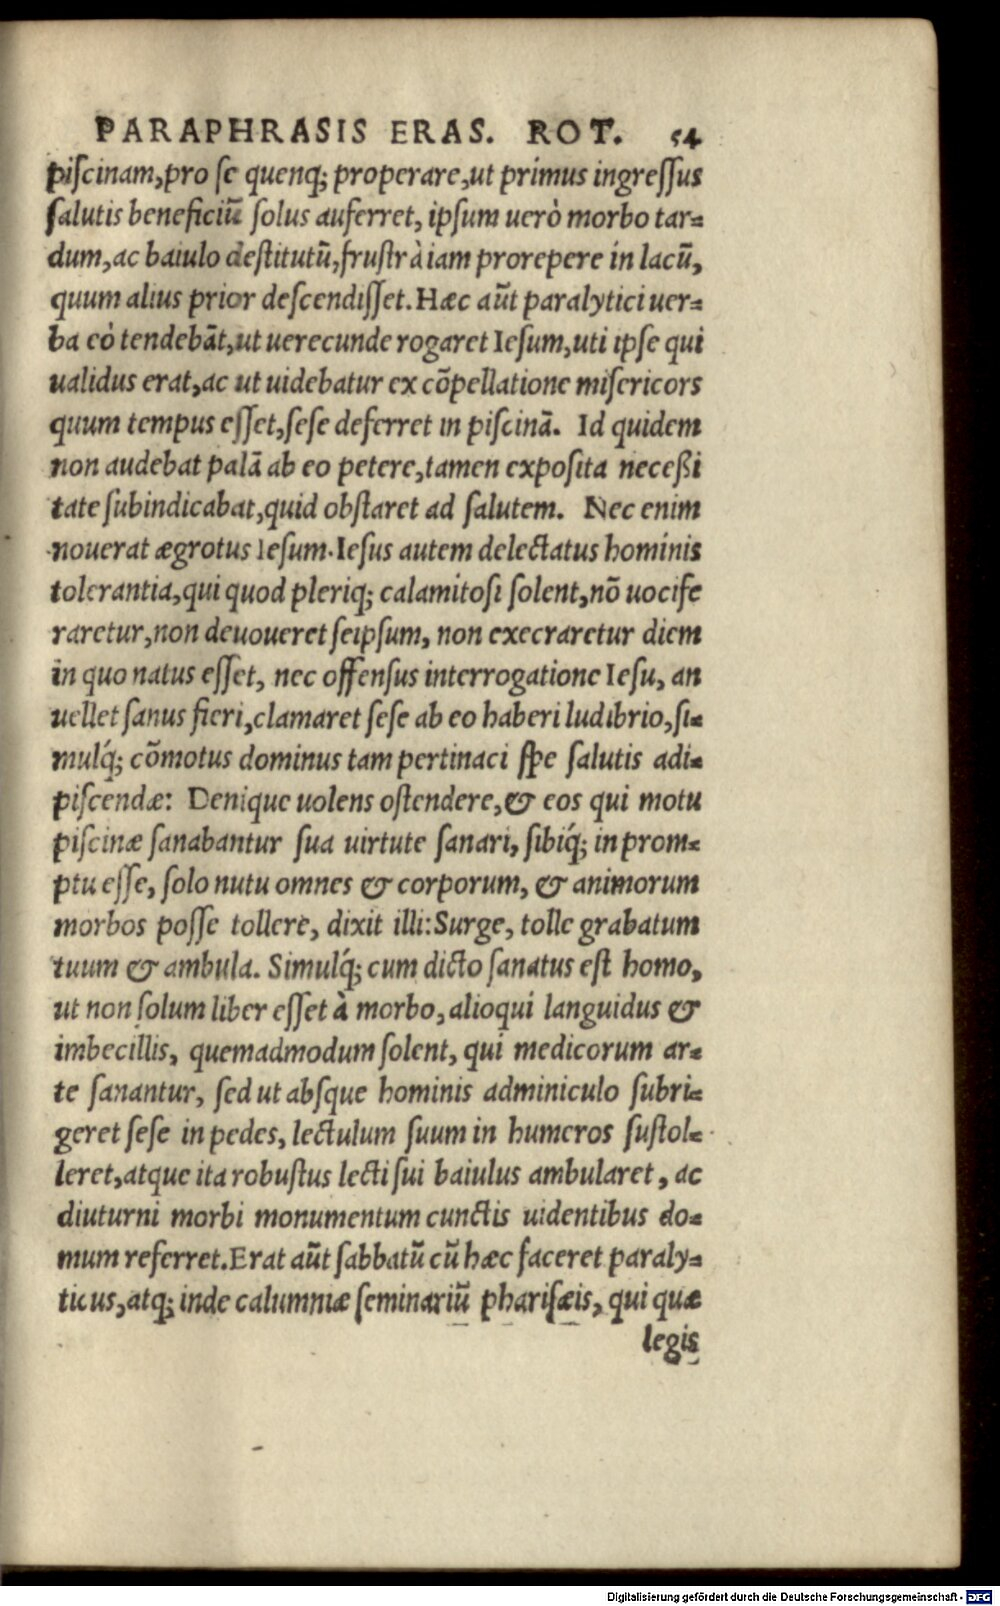 PARAPHRASIS ERAS. ROT. 54
piſcinam, pro ſe quenq; properare, ut primus ingreſſus
ſalutis beneficiũ ſolus auferret, ipſum uerò morbo tar-
dum, ac baiulo deſtitutũ, fruſtrà iam prorepere in lacũ,
quum alius prior deſcendiſſet. Hæc aũt paralytici uer-
ba eò tendebãt, ut uerecunde rogaret Ieſum, uti ipſe qui
ualidus erat, ac ut uidebatur ex cõpellatione miſericors
quum tempus eſſet, ſeſe deferret in piſcinã. Id quidem
non audebat palã ab eo petere, tamen expoſita neceßi
tate ſubindicabat, quid obſtaret ad ſalutem. Nec enim
nouerat ægrotus Ieſum. Ieſus autem delectatus hominis
tolerantia, qui quod pleriq; calamitoſi ſolent, nõ uocife
raretur, non deuoueret ſeipſum, non execraretur diem
in quo natus eſſet, nec offenſus interrogatione Ieſu, an
uellet ſanus fieri, clamaret ſeſe ab eo haberi ludibrio, ſi-
mulq́; cõmotus dominus tam pertinaci ſpe ſalutis adi-
piſcendæ: Denique uolens oſtendere, & eos qui motu
piſcinæ ſanabantur ſua uirtute ſanari, ſibiq́; in prom-
ptu eſſe, ſolo nutu omnes & corporum, & animorum
morbos poſſe tollere, dixit illi: Surge, tolle grabatum
tuum & ambula. Simulq́; cum dicto ſanatus eſt homo,
ut non ſolum liber eſſet à morbo, alioqui languidus &
imbecillis, quemadmodum ſolent, qui medicorum ar-
te ſanantur, ſed ut abſque hominis adminiculo ſubri-
geret ſeſe in pedes, lectulum ſuum in humeros ſuſtol-
leret, atque ita robuſtus lecti ſui baiulus ambularet, ac
diuturni morbi monumentum cunctis uidentibus do-
mum referret. Erat aũt ſabbatũ cũ hæc faceret paraly-
ticus, atq; inde calumniæ ſeminariũ phariſæis, qui quæ
legis
Digitalisierung gefördert durch die Deutsche Forschungsgemeinschaft - DFG